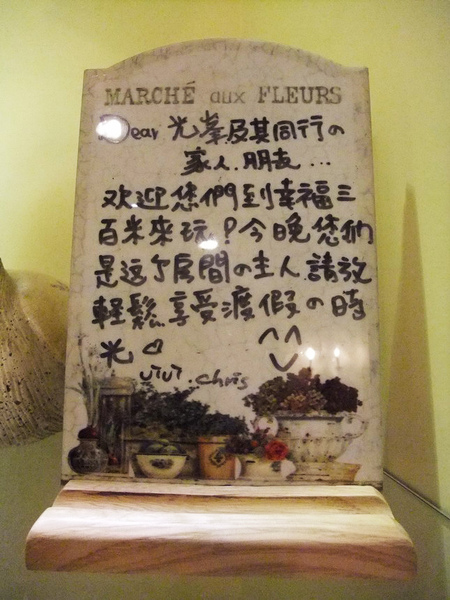 MARCHÉ aux FLEURS
Dear 光峯及其同行の
家人.朋友...
欢迎您們到幸福三
百米來玩!今晚您們
是这了房間の主人,請放
輕鬆享受渡假の時
光♡ ^^
ViVi.chris